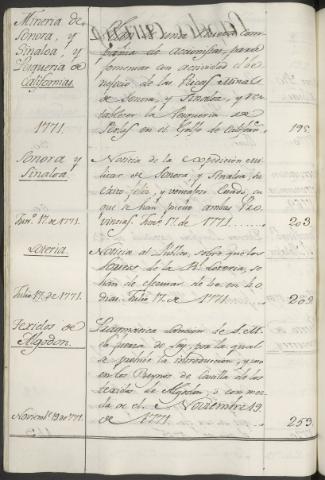 Mineria de
Sonora, y
Sinaloa y
Pesqueria de
Californias.
1771.
una nueva Com-
pañia de accionistas, para
fomentar con actividad el be-
neficio de las Ricas Minas
de Sonora, y Sinaloa, y res-
tablecer la Pesqueria de
Perlas en el Golfo de Californ.s
195.
Sonora y
Sinaloa.
Noticia de la expedicion mi-
litar de Sonora, y Sinaloa, su
exito feliz, y ventajoso estado, en
que se han puesto ambas Pro-
vincias. Jun.o 17. de 1771.
Jun.o 17. de 1771.
203
Loteria.
Noticia al Publico, sobre que los
Sorteos de la R.l Loteria, se
han de efectuar de 40 en 40
dias. Julio 17. de 1771.
Julio 17. de 1771.
202
Texidos de
Algodon.
Pragmatica Sancion de S. M.
en fuerza de Ley, por la qual
se prohive la introduccion, y uso
en los Reynos de Castilla de los
texidos de Algodon, o con mez-
cla de el. Noviembre 19.
de 1771.
Noviem.e 19 de 1771.
253